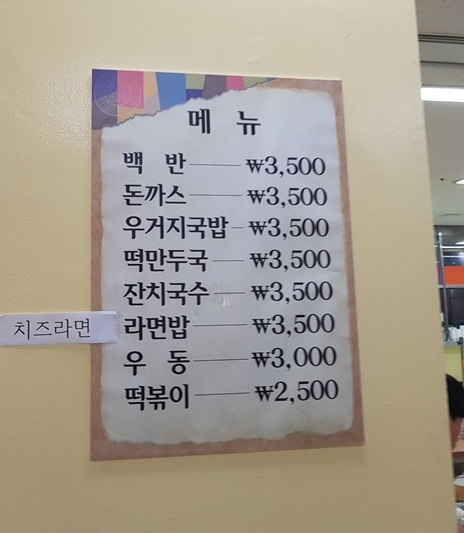 메 뉴
백 반 ₩3,500
돈까스 ₩3,500
우거지국밥 ₩3,500
떡만두국 ₩3,500
잔치국수 ₩3,500
치즈라면
라면밥 ₩3,500
우 동 ₩3,000
떡볶이 ₩2,500